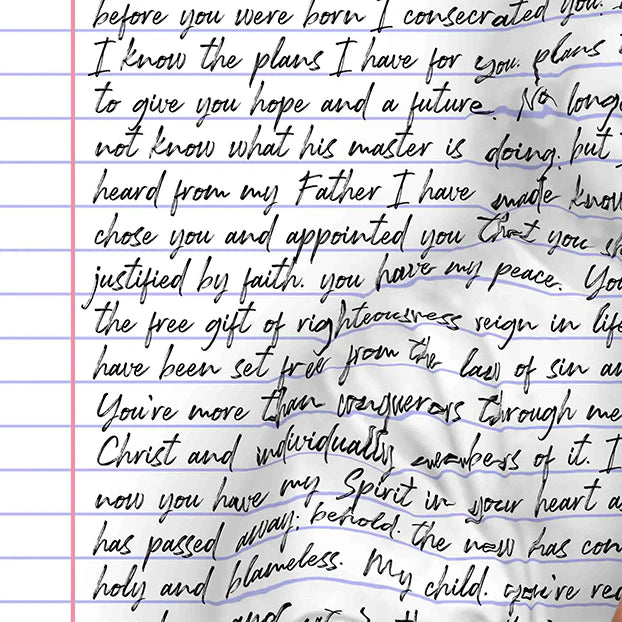 before you were born I consecrated you.
I know the plans I have for you. plans
to give you hope and a future. No long
not know what his master is doing. but
heard from my Father I have made know
chose you and appointed you that you sh
justified by faith. you have my peace. You
the free gift of righteousness reign in life
have been set free from the law of sin an
You're more than conquerors through me
Christ and individually members of it. I
now you have my Spirit in your heart a
has passed away; behold. the new has com
holy and blameless. My child. you're re
and